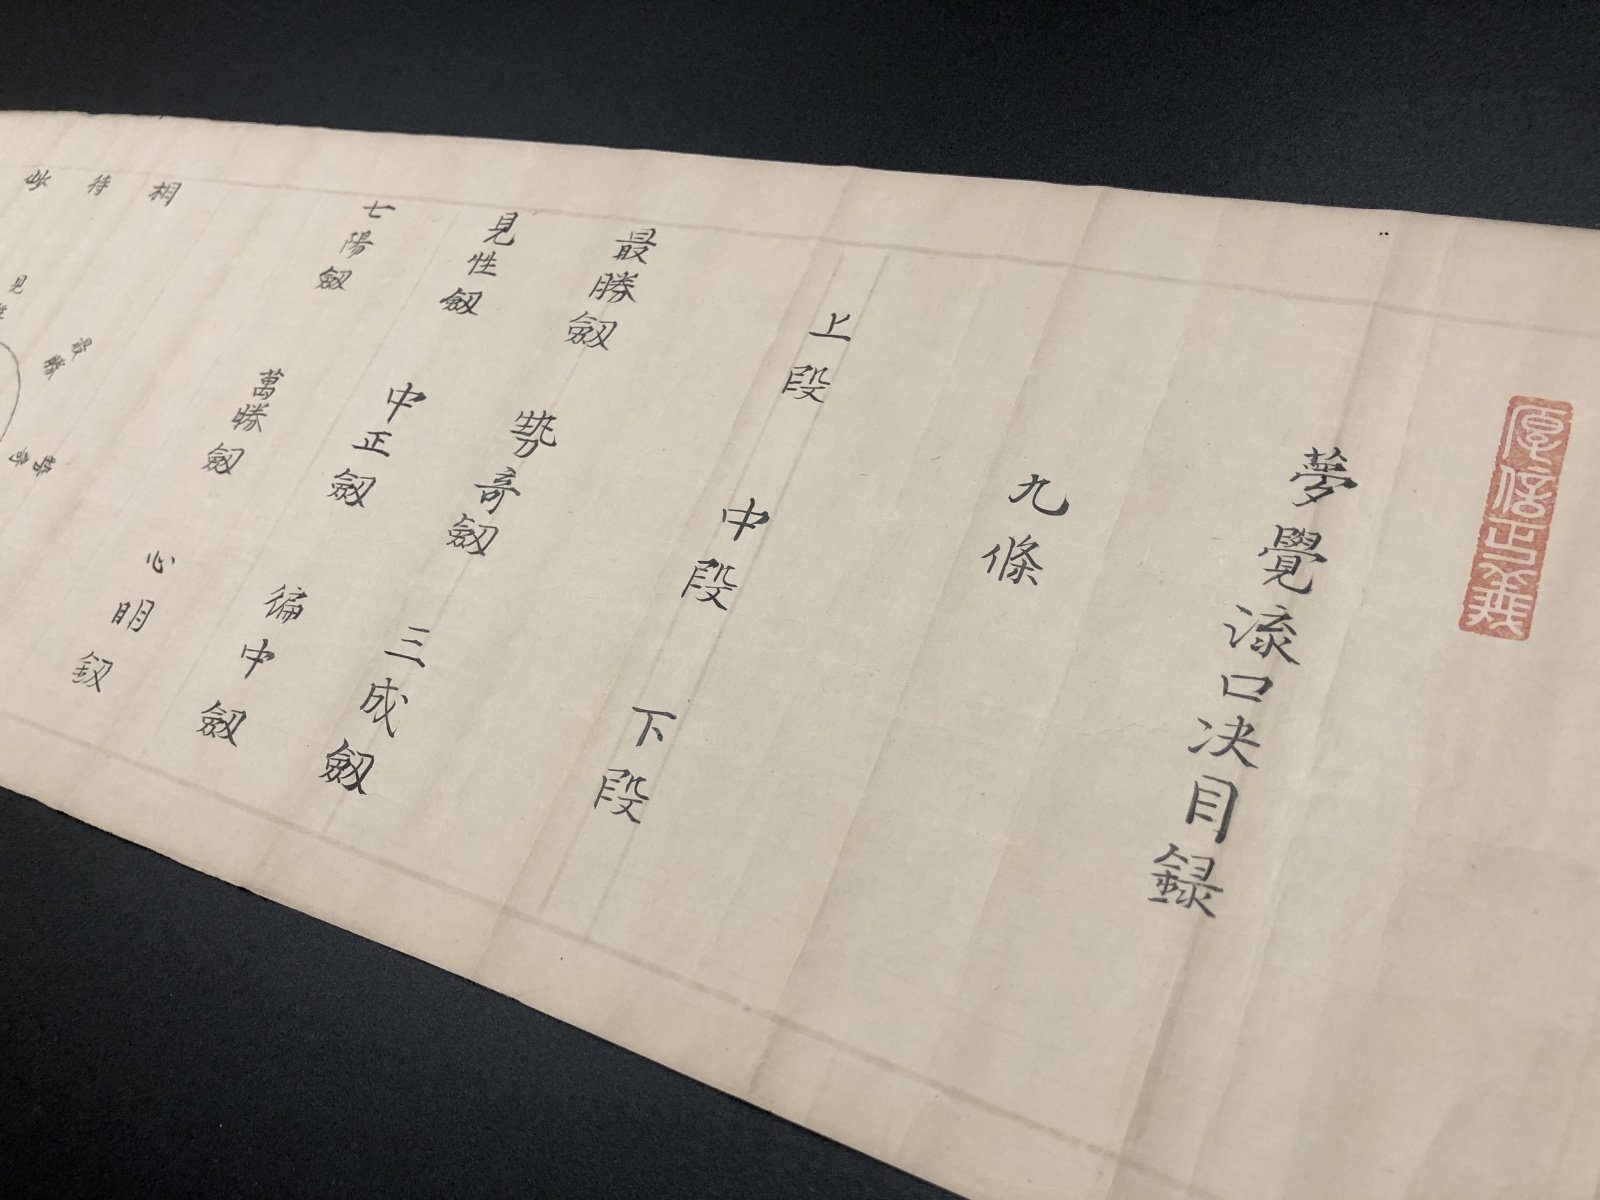 信正義
夢覺流口决目録
九條
上段 中段 下段
最勝劔 勢奇劔 三成劔
見性劔 中正劔 徧中劔
七陽劔 萬勝劔 心明釼
相待
最勝
勢奇
見性